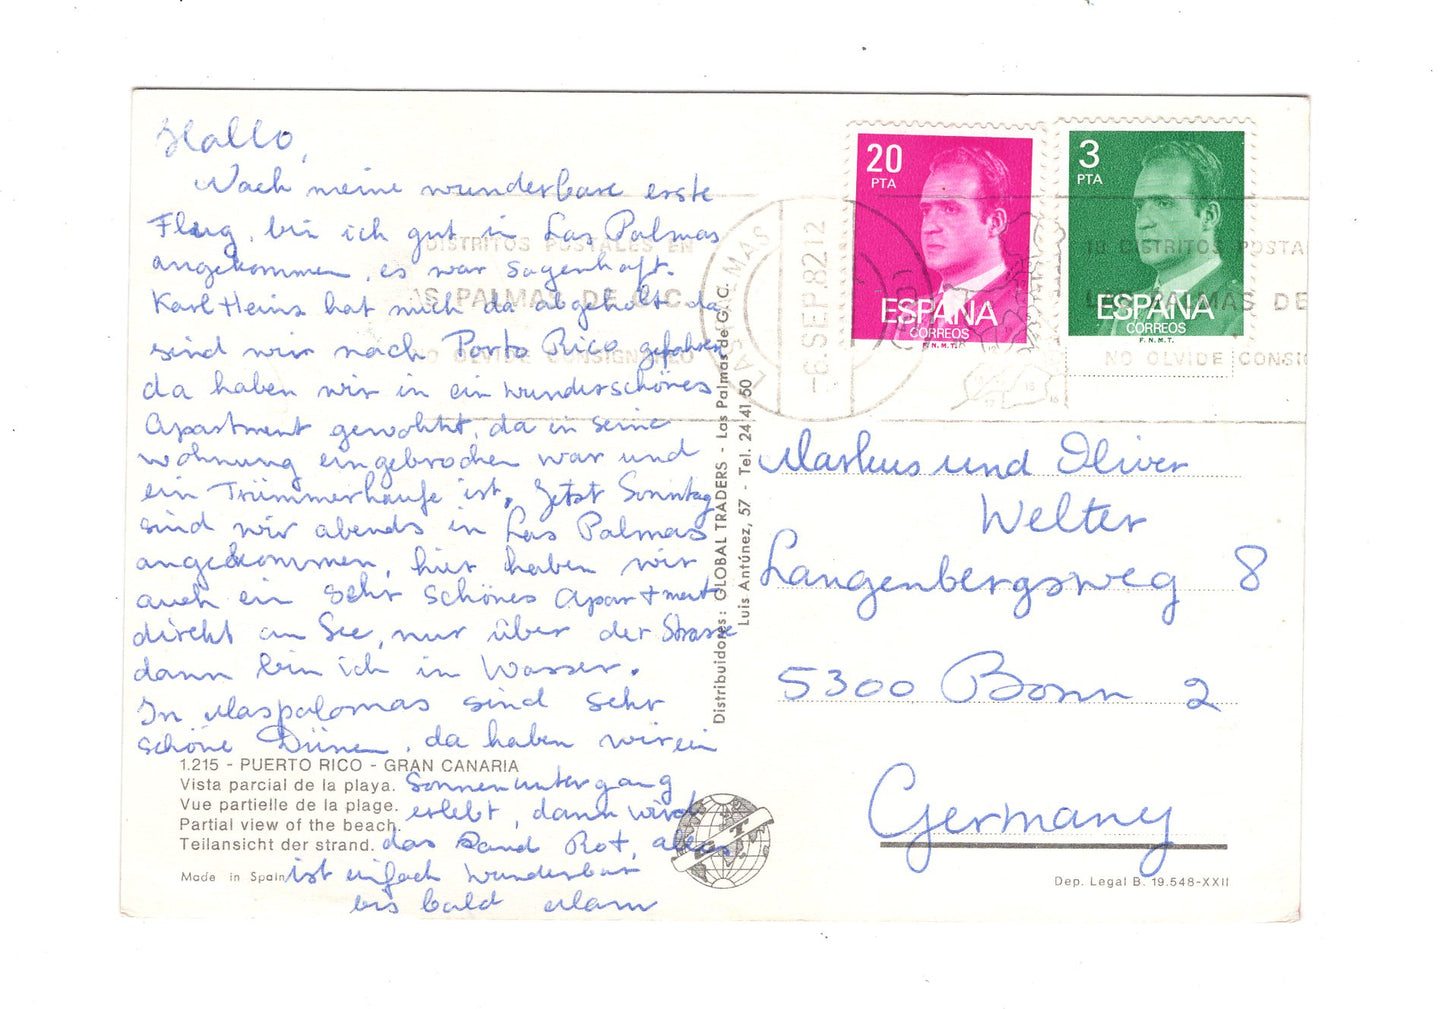 Hallo,
Nach meine wunderbare erste
Flug, bin ich gut in Las Palmas
angekommen, es war sagenhaft.
Karl Heinz hat mich da abgeholt da
sind wir nach Porto Rico gefahren
da haben wir in ein wunderschönes
Apartment gewohnt, da in seine
wohnung eingebrochen war und
ein Trümmerhaufe ist, Jetzt Sonntag
sind wir abends in Las Palmas
angekommen, hier haben wir
auch ein sehr schönes Apartment
direkt am See, nur über der Strasse
dann bin ich in Wasser.
In Maspalomas sind sehr
schöne Dünen, da haben wir ein
Sonnenuntergang
erlebt, dann wird
das Sand Rot, alles
ist einfach wunderbar
bis bald
1.215 - PUERTO RICO - GRAN CANARIA
Vista parcial de la playa.
Vue partielle de la plage.
Partial view of the beach.
Teilansicht der strand.
Made in Spain
Distribuidores: GLOBAL TRADERS - Las Palmas de G.C.
Luis Antúnez, 57 - Tel. 24 41 50
20
PTA
ESPAÑA
CORREOS
F.N.M.T.
3
PTA
ESPAÑA
CORREOS
F.N.M.T.
LAS PALMAS
-6.SEP.82 12
DISTRITOS POSTALES EN
AS PALMAS DE G.C.
NO OLVIDE CONSIGNARLO
18 DISTRITOS POSTA
LAS PALMAS DE
NO OLVIDE CONSIG
Markus und Oliver
Welter
Langenbergsweg 8
5300 Bonn 2
Germany
Dep. Legal B. 19.548-XXII